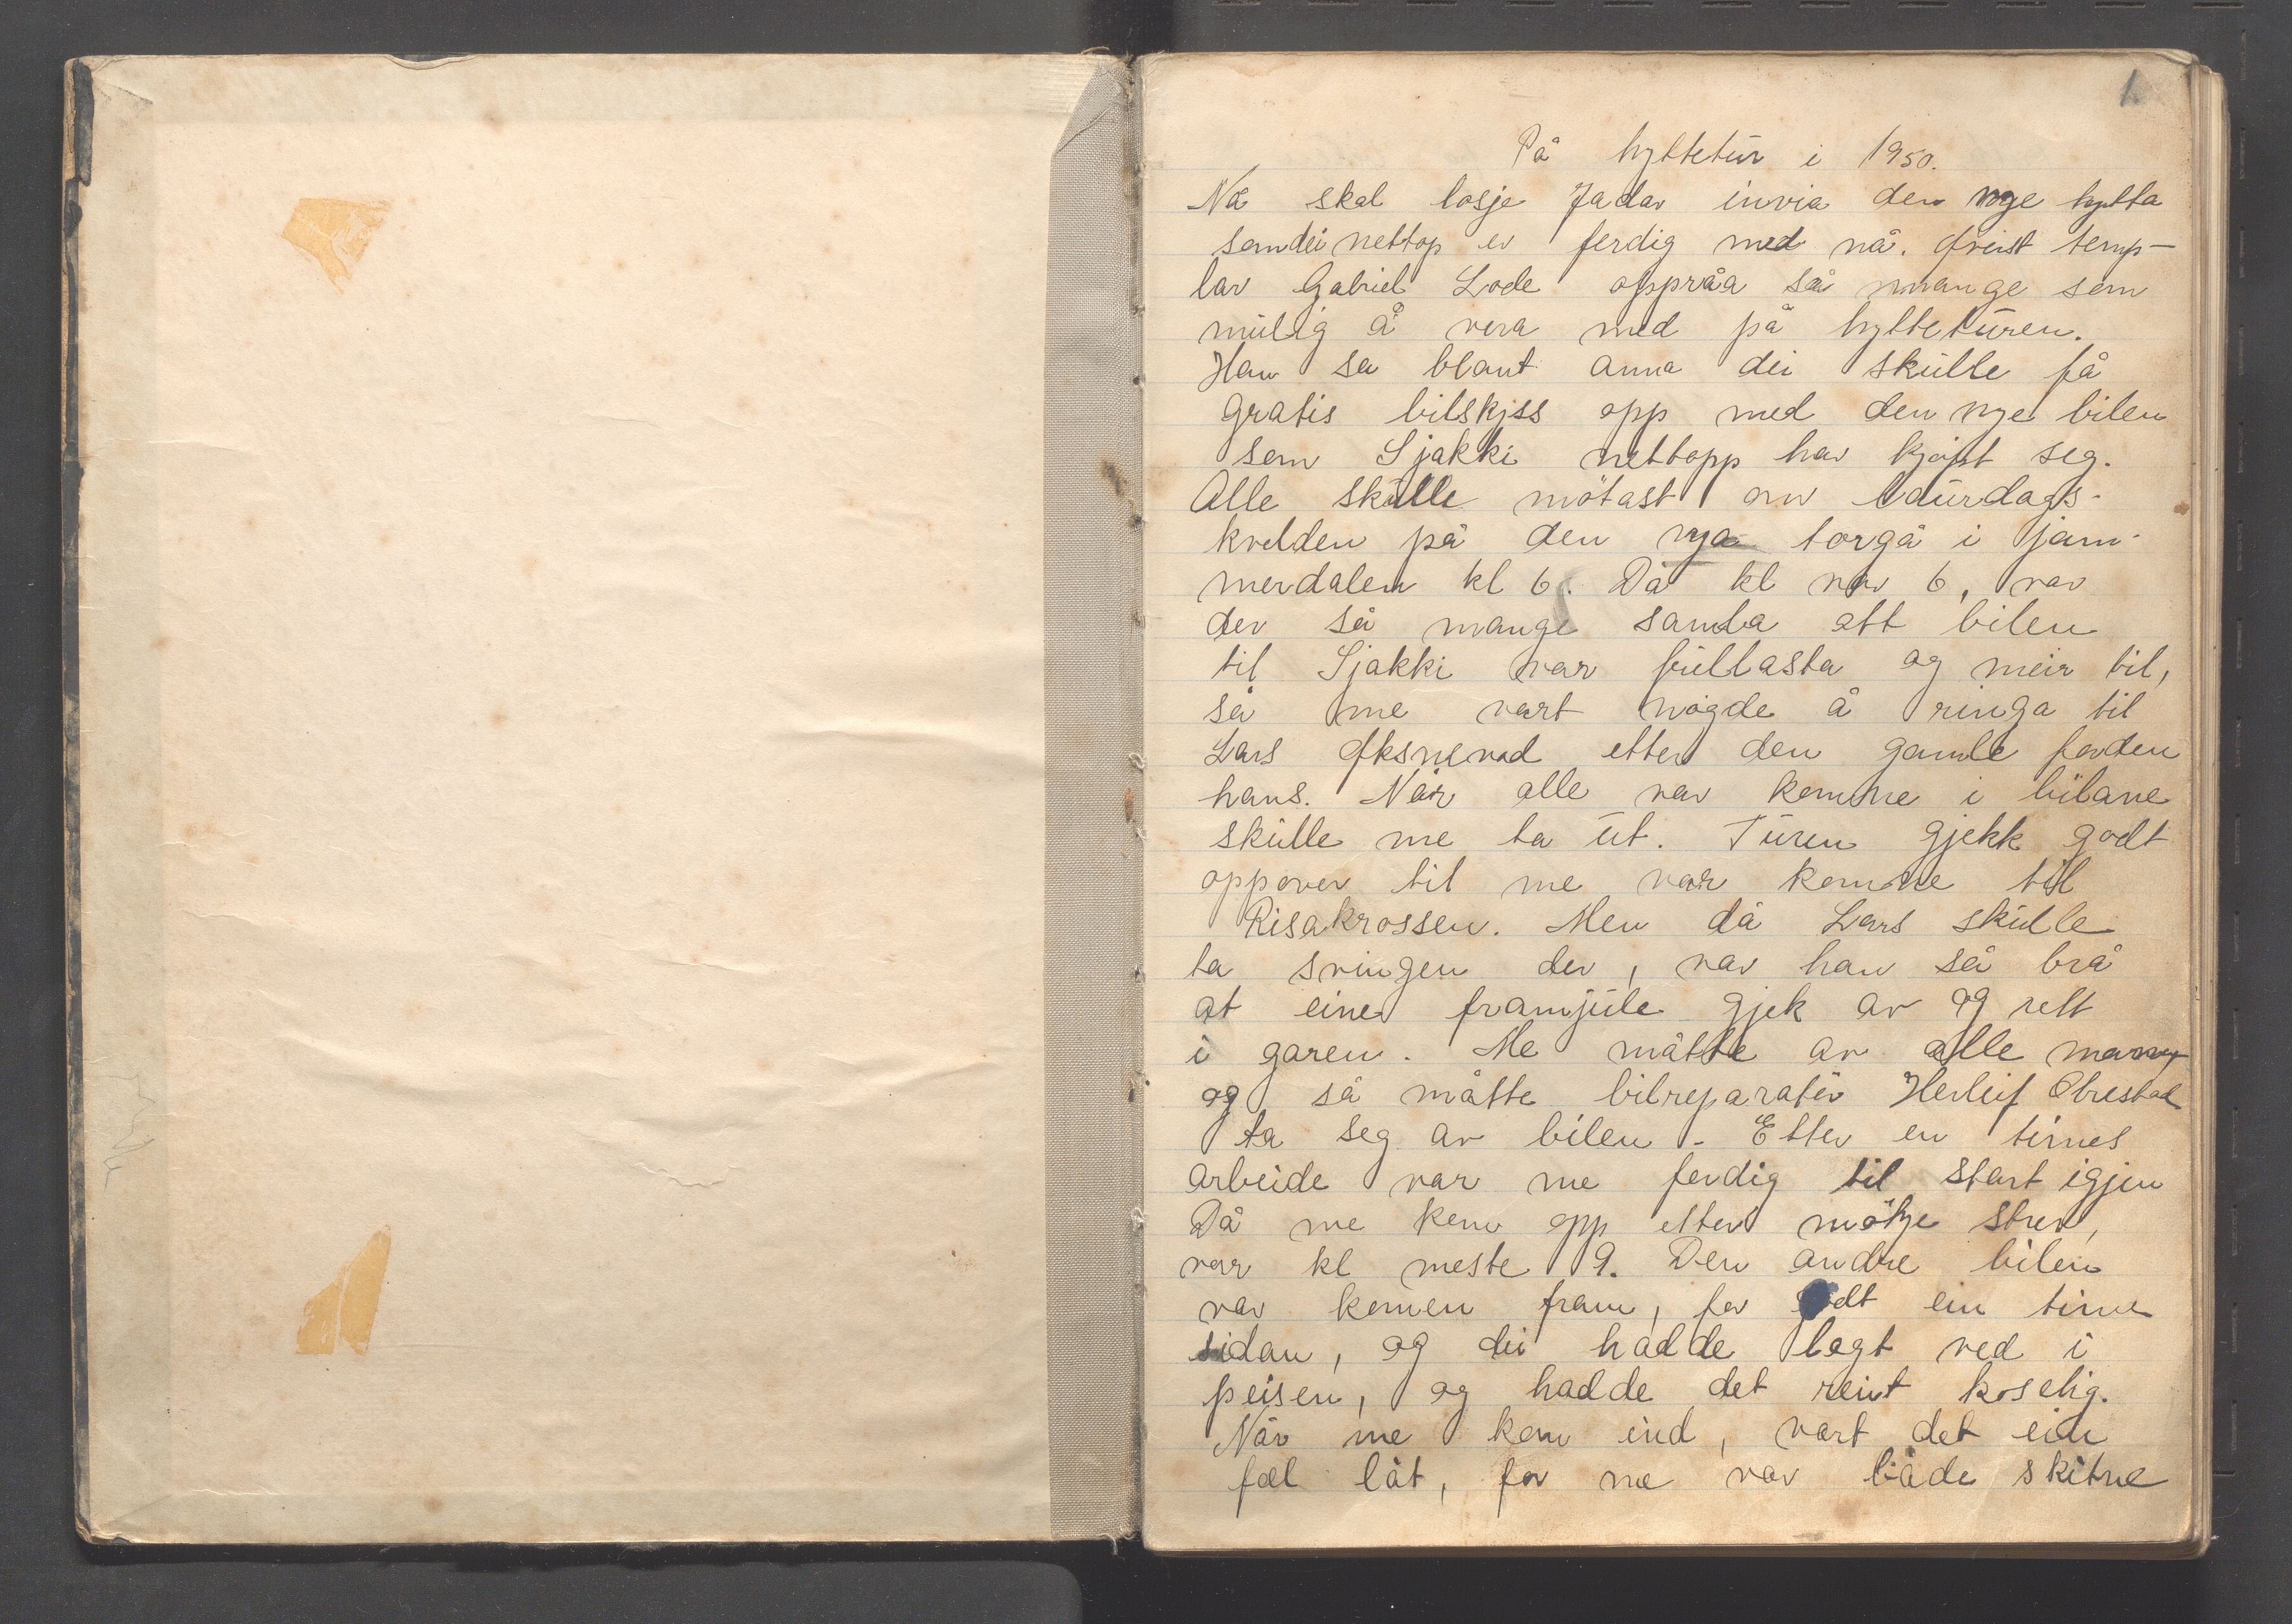 1
På hyttetur i 1950.
Nå skal losje Jadar invia den nye hytta
som dei nettop er ferdig med nå. Øvirst temp-
lar Gabriel Lode oppråa så mange som
mulig å vera med på hytteturen.
Han sa blant anna dei skulle få
gratis bilskjss opp med den nye bilen
som Sjakki nettopp har kjøpt seg.
Alle skulle møtast om laurdags-
kvelden på den nya torgå i jam-
merdalen kl 6. Då kl var 6, var
der så mange samla att bilen
til Sjakki var fullasta og meir til,
så me vart nøgde å ringa til
Lars Øksnevad etter den gamle forden
hans. Når alle var komne i bilane
skulle me ta ut. Turen gjekk godt
oppover til me var komne til
Risakrossen. Men då Lars skulle
ta svingen der, var han så brå
at eine framjule gjek av og rett
i garen. Me måtte av alle mann
og så måtte bilreparatør Herleif Obrestad
ta seg av bilen. Etter en times
arbeide var me ferdig til start igjen
Då me kom opp etter møkje strev,
var kl meste 9. Den andre bilen
var komen fram, for godt ein time
sidan, og dei hadde lagt ved i
peisen, og hadde det reint koselig.
Når me kom ind, vart det ein
fæl låt, for me var både skitne